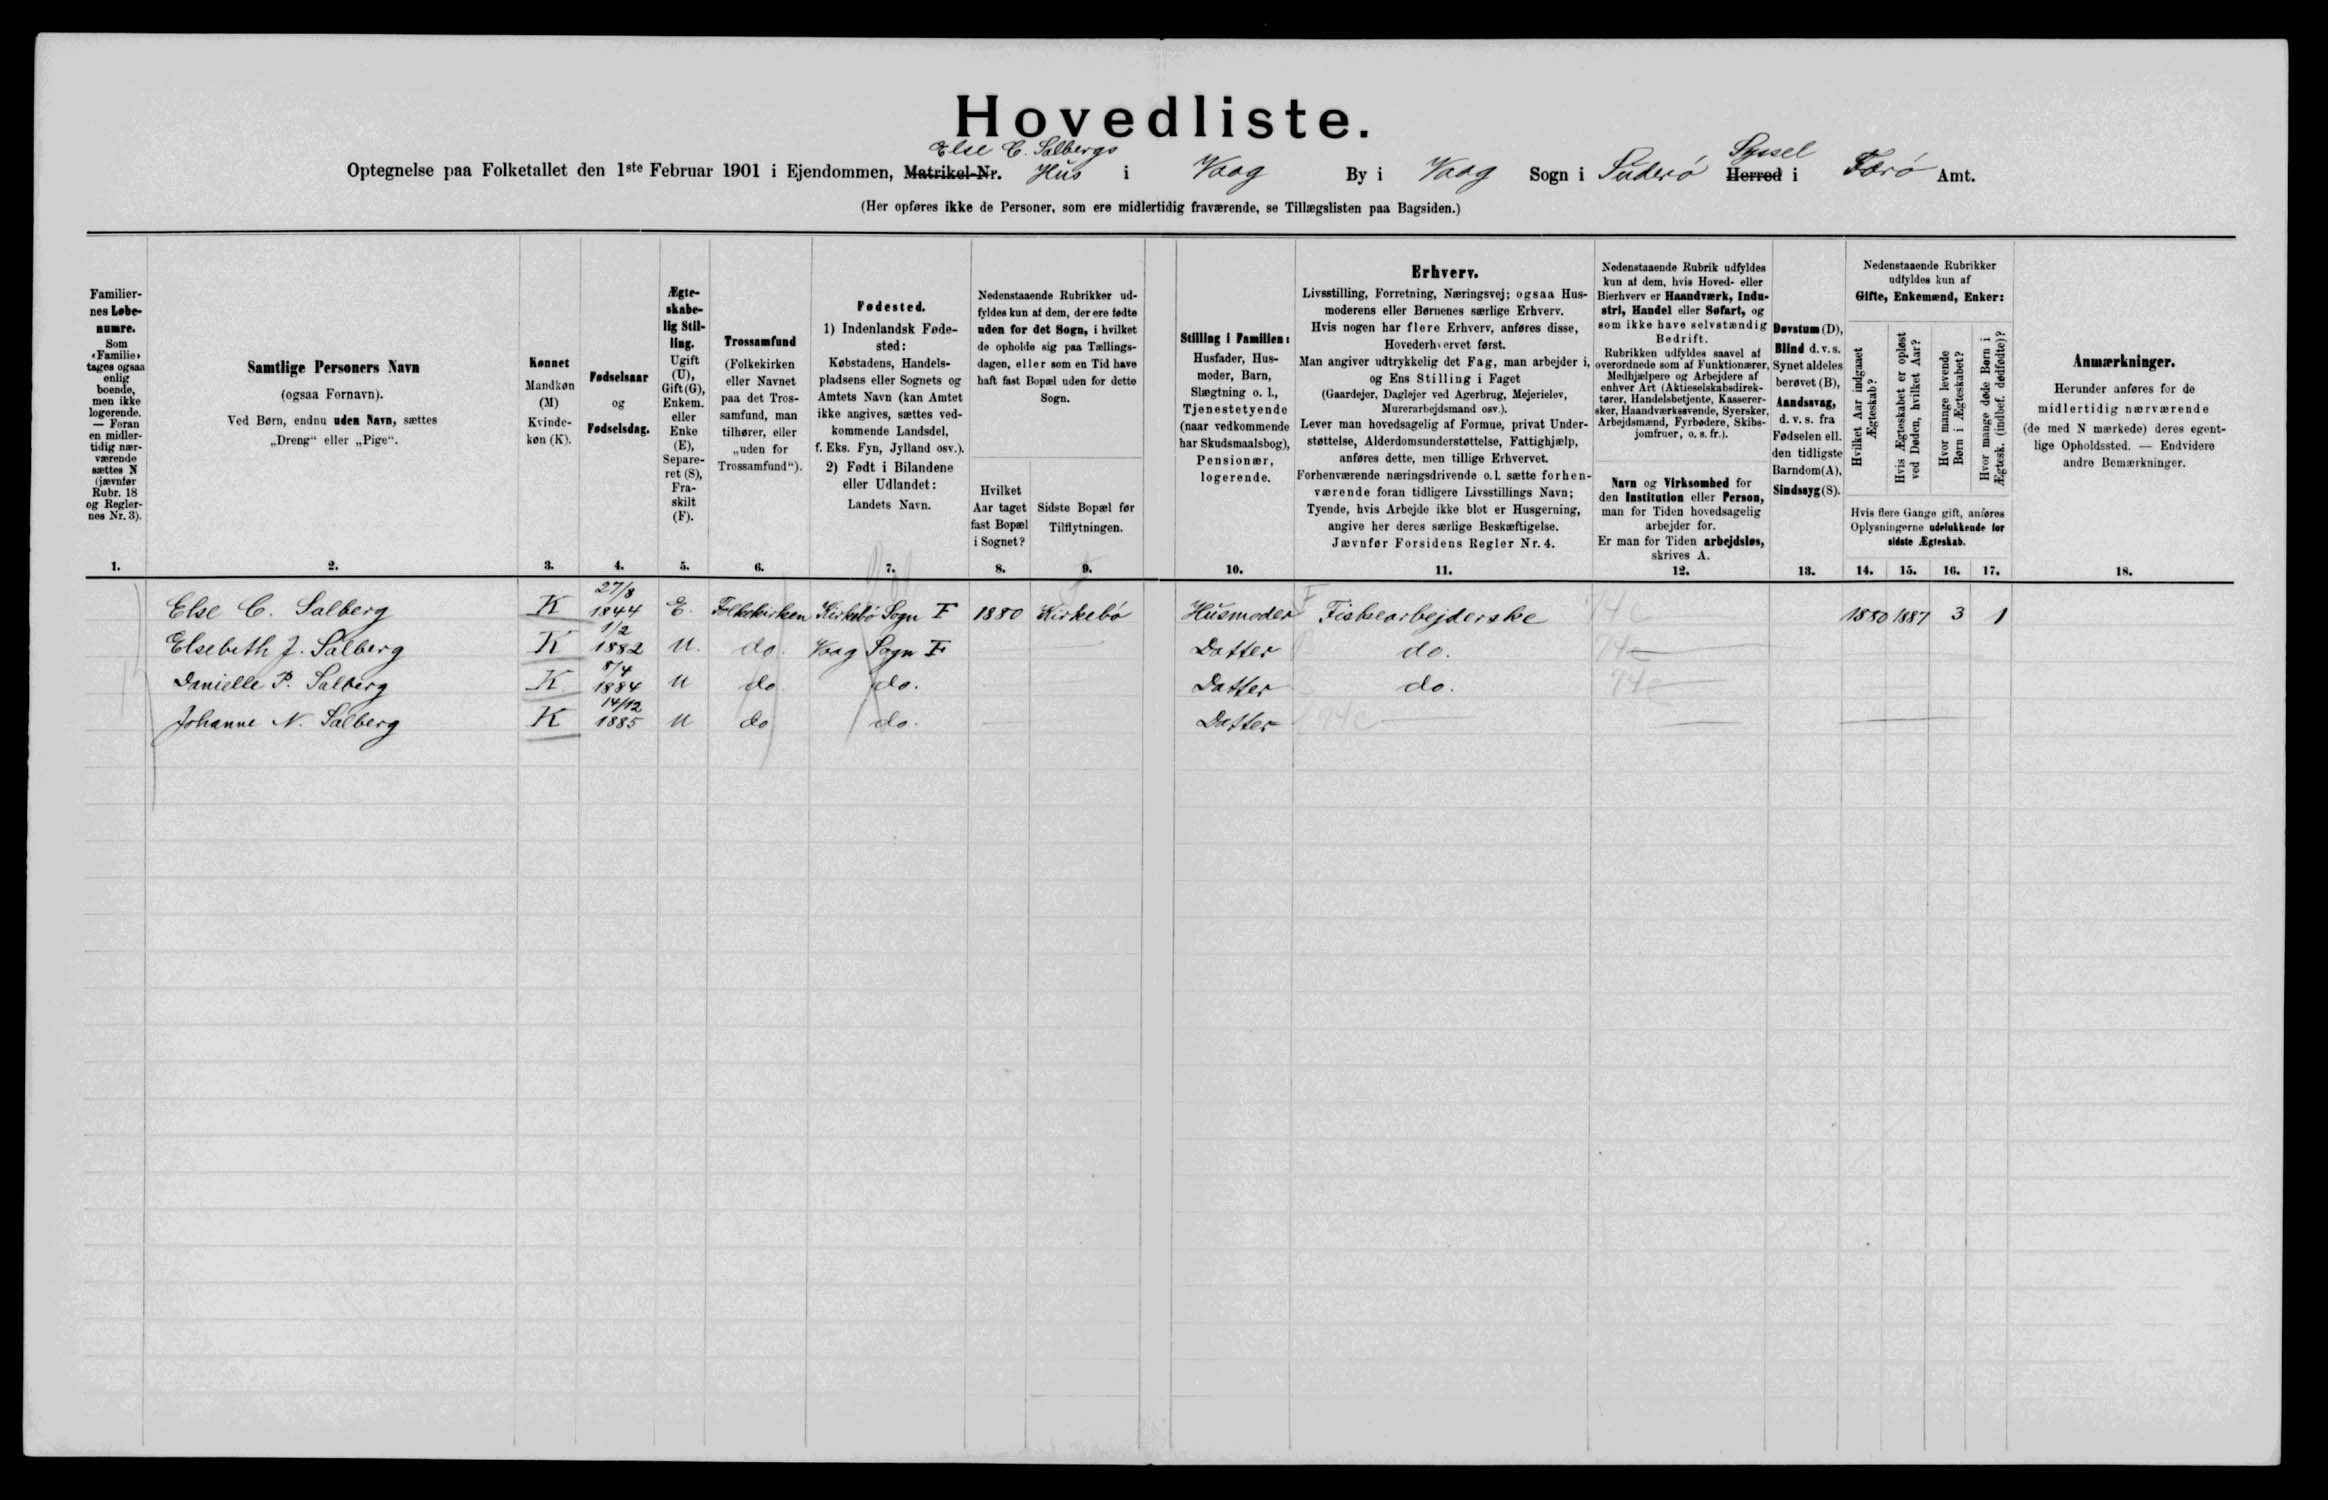 Hovedliste.
Else C. Salbergs
Optegnelse paa Folketallet den 1ste Februar 1901 i Ejendommen, Matrikel-Nr. Hus i Vaag By i Vaag Sogn i Suderø Syssel Herred i Færø Amt.
(Her opføres ikke de Personer, som ere midlertidig fraværende, se Tillægslisten paa Bagsiden.)
Familiernes Løbenumre.
Som «Familie» tages ogsaa enlig boende, men ikke logerende. — Foran en midlertidig nærværende sættes N (jævnfør Rubr. 18 og Reglernes Nr. 3).
Samtlige Personers Navn
(ogsaa Fornavn).
Ved Børn, endnu uden Navn, sættes
„Dreng“ eller „Pige“.
Kønnet
Mandkøn (M)
Kvindekøn (K).
Fødselsaar
og
Fødselsdag.
Ægteskabelig Stilling.
Ugift (U), Gift (G), Enkem. eller Enke (E), Separeret (S), Fraskilt (F).
Trossamfund
(Folkekirken eller Navnet paa det Trossamfund, man tilhører, eller „uden for Trossamfund“).
Fødested.
1) Indenlandsk Fødested:
Købstadens, Handelspladsens eller Sognets og Amtets Navn (kan Amtet ikke angives, sættes vedkommende Landsdel, f. Eks. Fyn, Jylland osv.).
2) Født i Bilandene eller Udlandet:
Landets Navn.
Nedenstaaende Rubrikker udfyldes kun af dem, der ere fødte uden for det Sogn, i hvilket de opholde sig paa Tællingsdagen, eller som en Tid have haft fast Bopæl uden for dette Sogn.
Hvilket Aar taget fast Bopæl i Sognet?
Sidste Bopæl før Tilflytningen.
Stilling i Familien:
Husfader, Husmoder, Barn, Slægtning o. l., Tjenestetyende (naar vedkommende har Skudsmaalsbog), Pensionær, logerende.
Erhverv.
Livsstilling, Forretning, Næringsvej; ogsaa Husmoderens eller Børnenes særlige Erhverv.
Hvis nogen har flere Erhverv, anføres disse, Hovederhvervet først.
Man angiver udtrykkelig det Fag, man arbejder i, og Ens Stilling i Faget
(Gaardejer, Daglejer ved Agerbrug, Mejerielev, Murerarbejdsmand osv.).
Lever man hovedsagelig af Formue, privat Understøttelse, Alderdomsunderstøttelse, Fattighjælp, anføres dette, men tillige Erhvervet.
Forhenværende næringsdrivende o. l. sætte forhenværende foran tidligere Livsstillings Navn;
Tyende, hvis Arbejde ikke blot er Husgerning, angive her deres særlige Beskæftigelse.
Jævnfør Forsidens Regler Nr. 4.
Nedenstaaende Rubrik udfyldes kun af dem, hvis Hoved- eller Bierhverv er Haandværk, Industri, Handel eller Søfart, og som ikke have selvstændig Bedrift.
Rubrikken udfyldes saavel af overordnede som af Funktionærer, Medhjælpere og Arbejdere af enhver Art (Aktieselskabsdirektører, Handelsbetjente, Kasserersker, Haandværkssvende, Syersker, Arbejdsmænd, Fyrbødere, Skibsjomfruer, o. s. fr.).
Navn og Virksomhed for den Institution eller Person, man for Tiden hovedsagelig arbejder for.
Er man for Tiden arbejdsløs, skrives A.
Døvstum (D), Blind d. v. s. Synet aldeles berøvet (B), Aandssvag, d. v. s. fra Fødselen ell. den tidligste Barndom (A), Sindssyg (S).
Nedenstaaende Rubrikker udfyldes kun af
Gifte, Enkemænd, Enker:
Hvilket Aar indgaaet Ægteskab?
Hvis Ægteskabet er opløst ved Døden, hvilket Aar?
Hvor mange levende Børn i Ægteskabet?
Hvor mange døde Børn i Ægtesk. (indbef. dødfødte)?
Hvis flere Gange gift, anføres Oplysningerne udelukkende for sidste Ægteskab.
Anmærkninger.
Herunder anføres for de midlertidig nærværende (de med N mærkede) deres egentlige Opholdssted. — Endvidere andre Bemærkninger.
1. 2. 3. 4. 5. 6. 7. 8. 9. 10. 11. 12. 13. 14. 15. 16. 17. 18.
Else C. Salberg K 27/8 1844 E. Folkekirken Kirkebø Sogn F 1880 Kirkebø Husmoder Fiskearbejderske 1880 1887 3 1
Elsebeth J. Salberg K 1/2 1882 U. do. Vaag Sogn F Datter do.
Danielle P. Salberg K 8/4 1884 U do do. Datter do.
Johanne N. Salberg K 14/12 1885 U do do. Datter